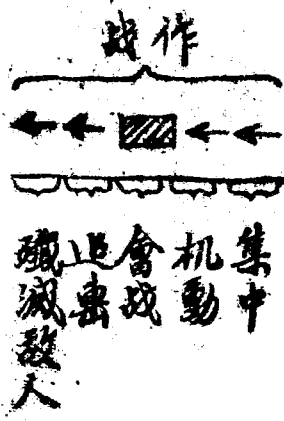 作战
集中
机動
會战
追击
殲滅敌人